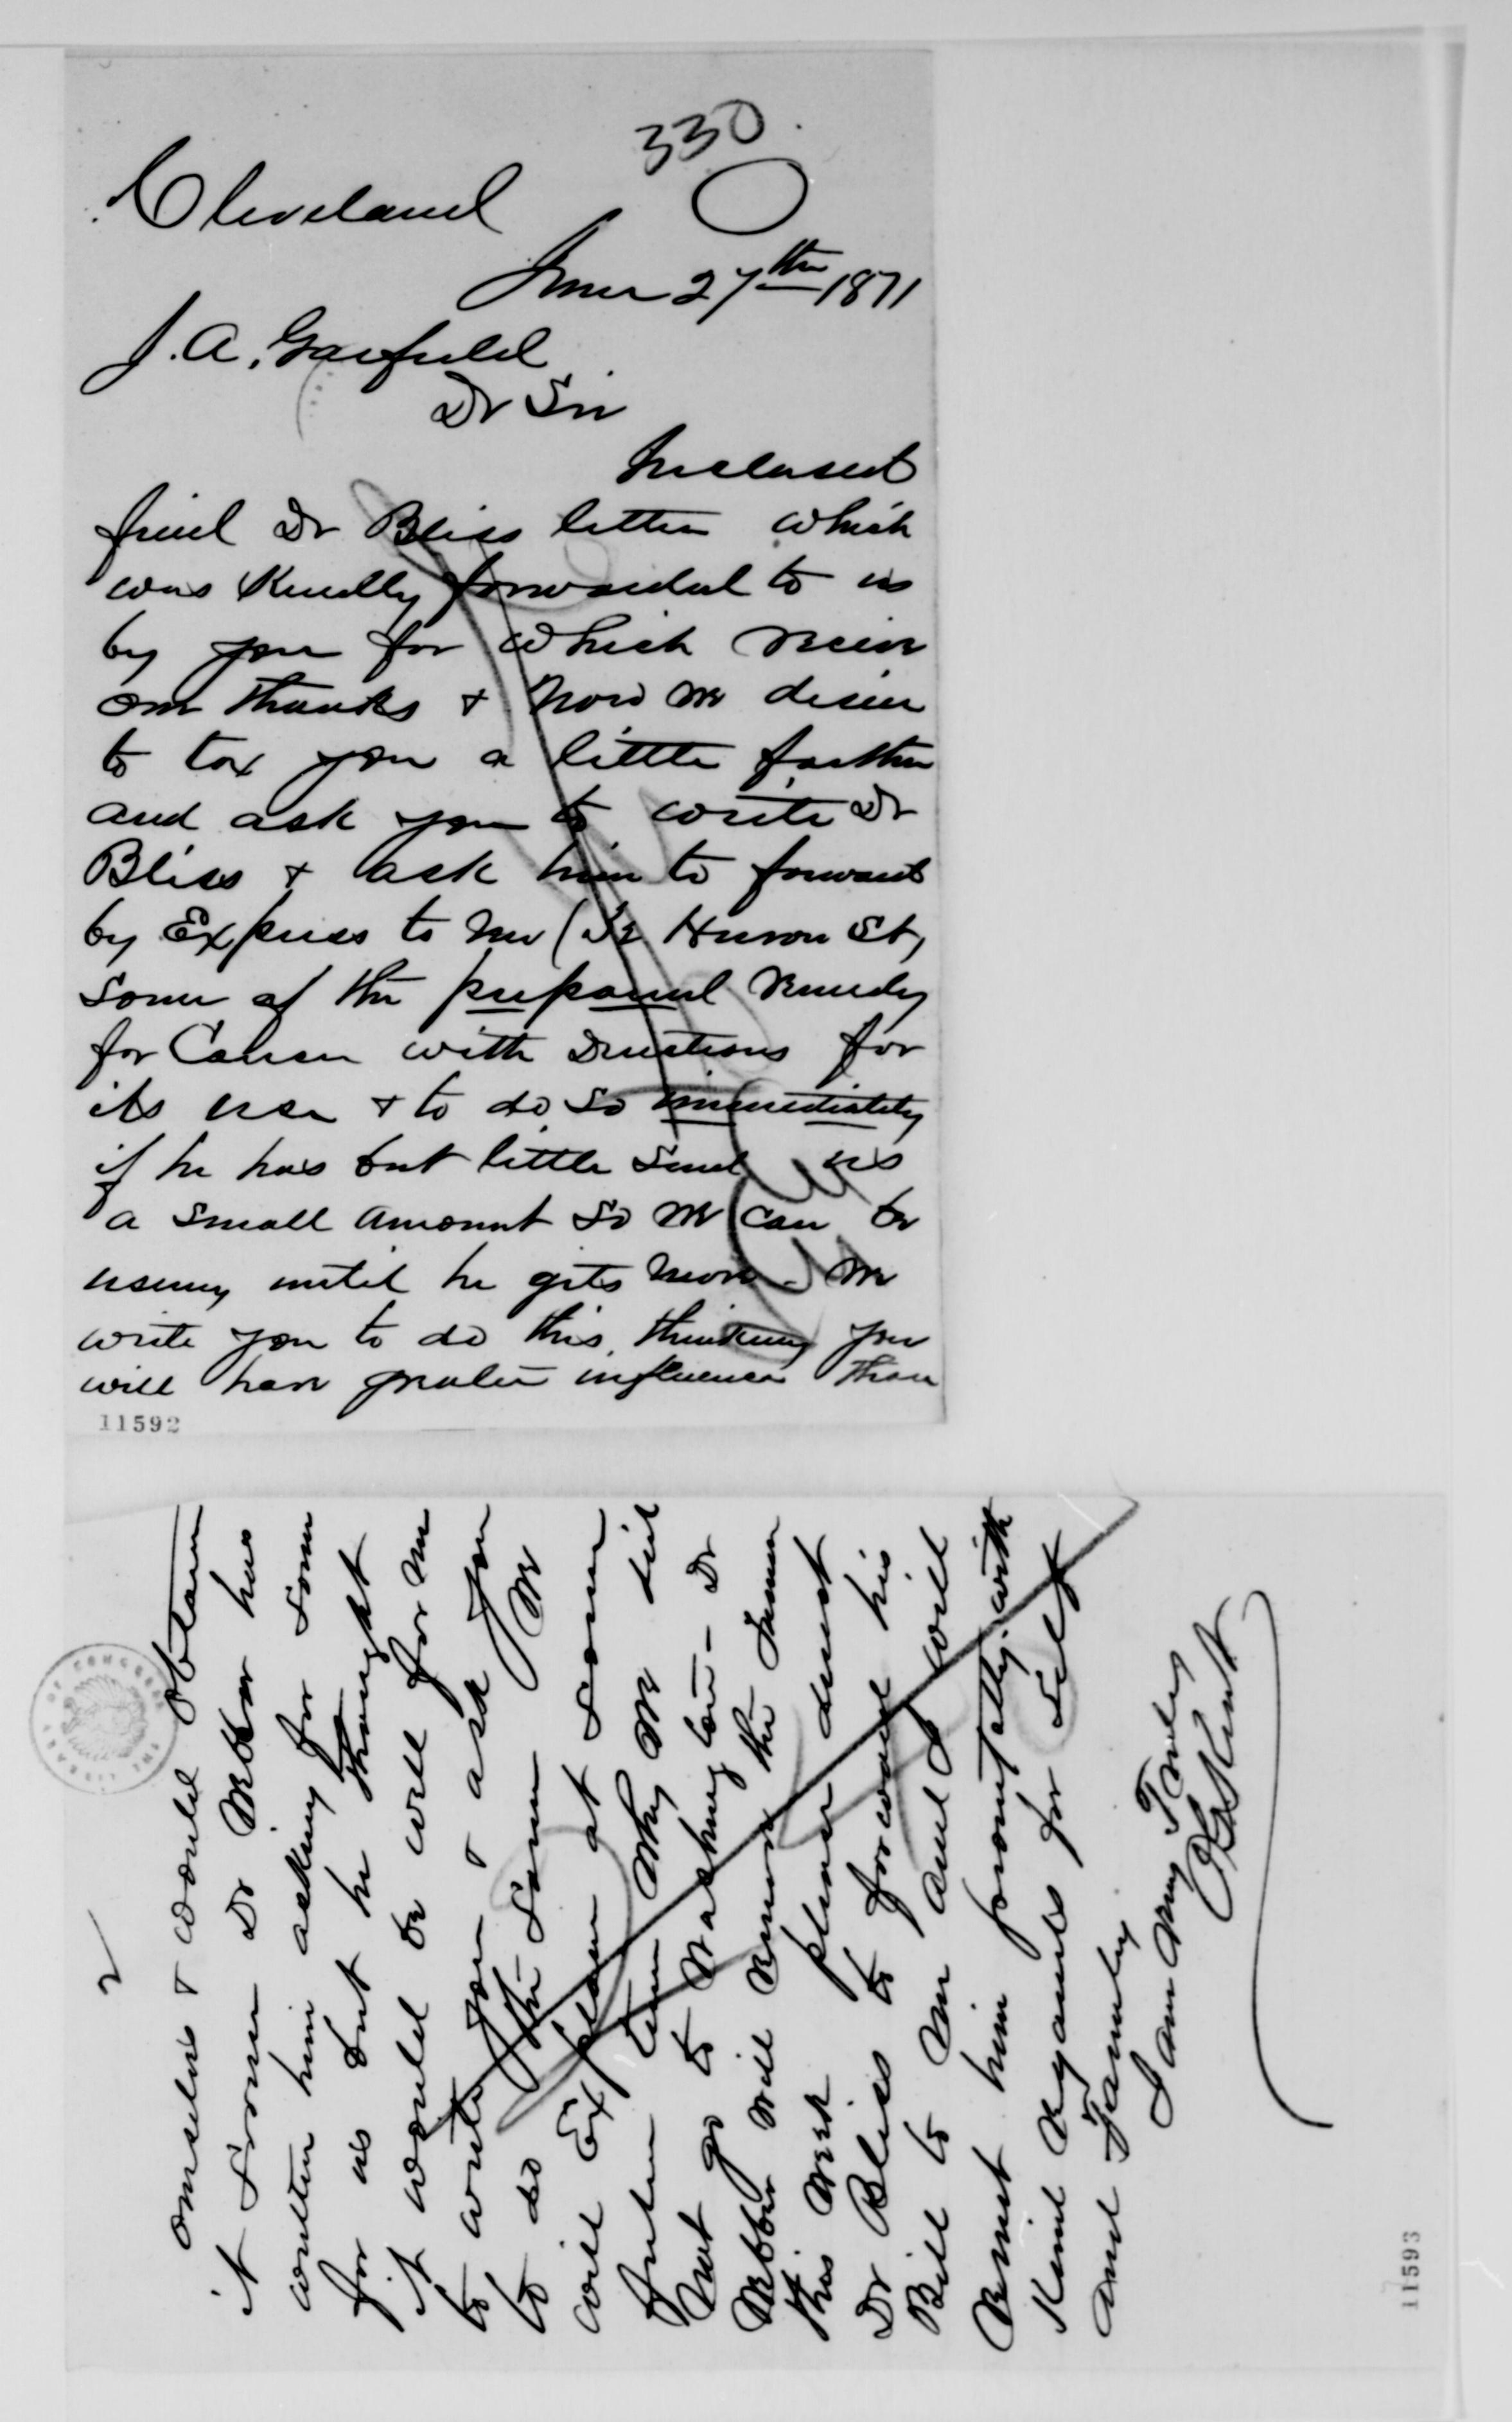 330
Cleveland
June 27th 1871
J. A. Garfield
Dr Sir
Inclosed
find Dr Bliss letter which
was kindly forwarded to us
by you for which receive
our thanks & now we desire
to tax you a little farther
and ask you to write Dr
Bliss & ask him to forward
by Express to me ( Huron St,
some of the prepared remedy
for Cancer with Directions for
its use & to do so immediately
if he has but little send us
a small amount so we can be
using until he gets more - We
write you to do this, thinking you
will have greater influence than
11592
2
ourselves & would obtain
it sooner Dr Webber has
written him asking for some
for us but he thought
it would be well for me
to write you & ask you
to do the same We
will Explain at some
future time why we did
not go to Washington - Dr
Webber will remove the
this week please direct
Dr Bliss to forward his
Bill to me and I will
Remit him promptly. with
Kind Regards for self
and Family
I am very Truly
Kent
11593